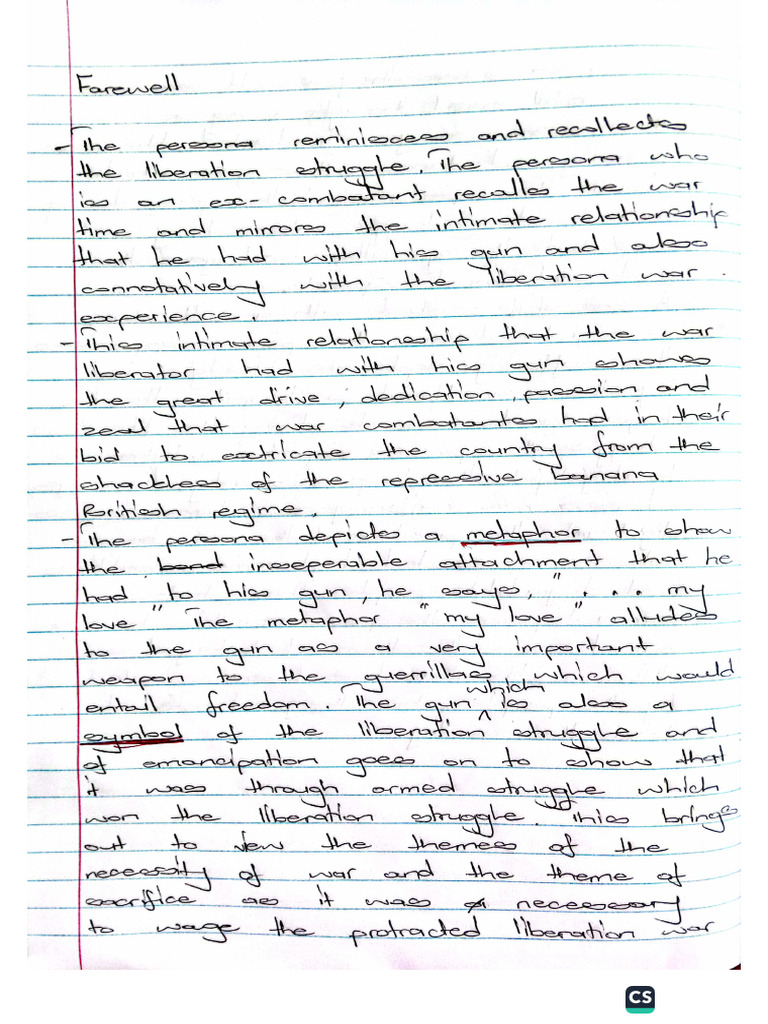 Farewell
- The persona reminiscess and recollects
the liberation struggle. The persona who
is an ex-combatant recalles the war
time and mirrors the intimate relationship
that he had with his gun and also
connotatively with the liberation war
experience.
- This intimate relationship that the war
liberator had with his gun shows
the great drive, dedication, passion and
zeal that war combatants had in their
bid to extricate the country from the
shackles of the repressive banana
British regime.
- The persona depicts a metaphor to show
the bond inseperable attachment that he
had to his gun, he says, "... my
love" The metaphor "my love" alludes
to the gun as a very important
weapon to the guerrillas which would
entail freedom. The gun which is also a
symbol of the liberation struggle and
of emancipation goes on to show that
it was through armed struggle which
won the liberation struggle. This brings
out to view the themes of the
necessity of war and the theme of
sacrifice as it was necessary
to wage the protracted liberation war
CS